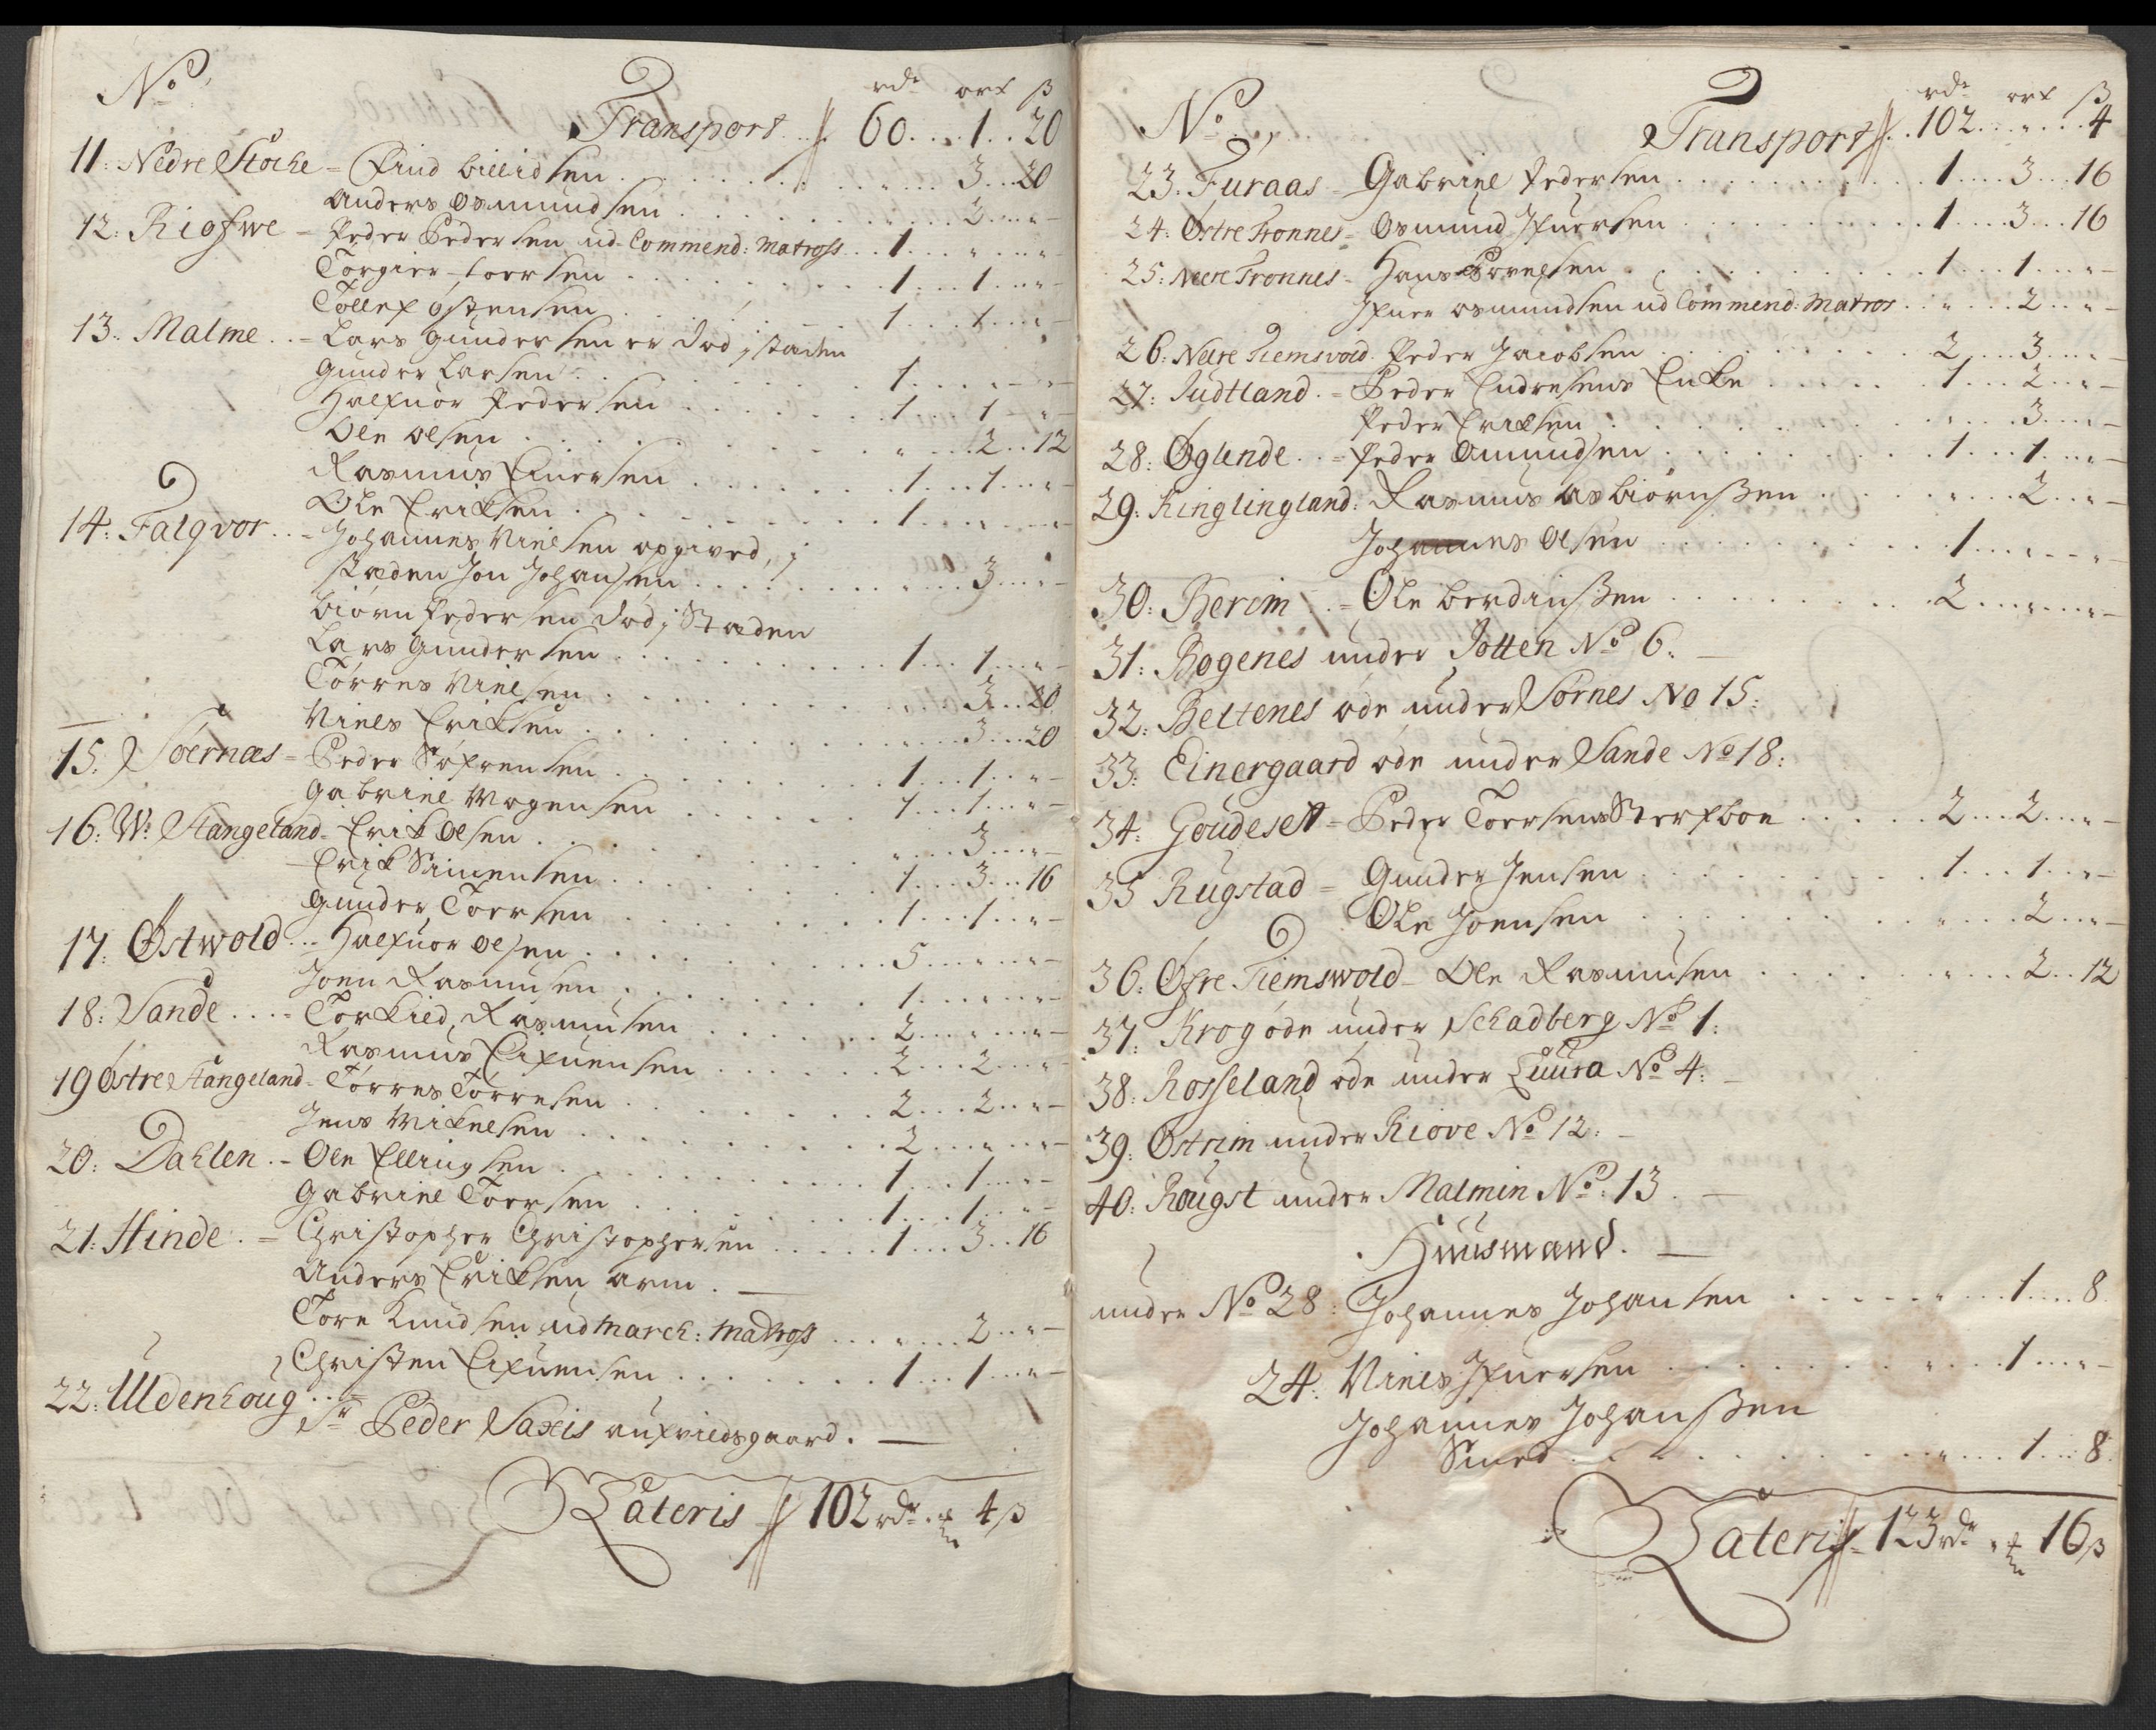 No rdr ort ß
Transport 60 . . 1 . . 20
11: Nedre Stoche = Find Villidsen . . . „ . . 3 . . 20
Anders Osmundsen . . . „ . . 2 . . „
12: Riofwe = Peder Pedersen ud Commend: Matross . . 1 . . „ . . „
Torgier Toersen . . . 1 . . 1 . . „
Tollef Østensen . . . 1 . . 1 . . „
13: Malme . . = Lars Gundersen er død, j staden
Gunder Larsen . . . 1 . . „ . . „
Halfuor Pedersen . . . 1 . . 1 . . „
Ole Olsen . . . „ . . 2 . . 12
Rasmus Einersen . . . 1 . . 1 . . „
Ole Eriksen . . . 1 . . „ . . „
14: Falqvor . . = Johannes Nielsen opgived, j
staden Jon Johansen . . . „ . . 3 . . „
Biørn Pedersen død, j Staden
Lars Gundersen . . . 1 . . 1 . . „
Tørres Nielsen . . . „ . . 3 . . 20
Niels Eriksen . . . „ . . 3 . . 20
15: Soernæs = Peder Søfrensen . . . 1 . . 1 . . „
Gabriel Mogensen . . . 1 . . 1 . . „
16: W: Stangeland = Erik Olsen . . . „ . . 3 . . „
Erik Simensen . . . 1 . . 3 . . 16
Gunder Toersen . . . 1 . . 1 . . „
17: Østwold . . = Halfuor Olsen . . . 5 . . „ . . „
Joen Rasmusen . . . 1 . . „ . . „
18: Sande . . . = Torkied Rasmusen . . . 2 . . „ . . „
Rasmus Eifuensen . . . 2 . . 2 . . „
19 Østre Stangeland = Tørres Tørresen . . . 2 . . 2 . . „
Jens Mikelsen . . . 2 . . „ . . „
20: Dahlen . = Ole Ellingsen . . . 1 . . 1 . . „
Gabriel Toersen . . . 1 . . 1 . . „
21: Hinde . = Christopher Christophersen . . . 1 . . 3 . . 16
Anders Eriksen arm . —
Tore Knudsen ud March: Matross . . . „ . . 2 . . „
Christen Eifuensen . . . 1 . . 1 . . „
22: Udenhoug . . =
Sr Peder Saxis aufvieldsgaard . —
Lateris 102 rdr . „ . 4 ß
No rdr ort ß
Transport . . 102 . . „ . . 4
23: Furaas = Gabriel Pedersen . . . 1 . . 3 . . 16
24: Østre Tronnes = Osmund Ifuersen . . . 1 . . 3 . . 16
25: Nedre Tronnes = Hans Povelsen . . . 1 . . 1 . . „
Ifuer Osmundsen ud Commend: Matros . . „ . . 2 . . „
26: Nedre Tiemsvold . Peder Jacobsen . . . 2 . . 3 . . „
27: Judtland . = Peder Endresens Enke . . . 1 . . 2 . . „
Peder Eriksen . . . „ . . 3 . . „
28: Øglende . . = Peder Omundsen . . . 1 . . 1 . . „
29: Kinglingland: Rasmus Asbiørnßen . . . „ . . 2 . . „
Johannes Olsen . . . 1 . . „ . . „
30: Berim . . = Ole Berdinßen . . . 2 . . „ . . „
31: Bogenes under Jotten No 6: —
32: Beltenes øde under Sørnes No 15:
33: Einergaard øde under Sande No 18:
34: Goudesett = Peder Toersens Sterfboe . . . 2 . . 2 . . „
35 Rugstad = Gunder Jensen . . . 1 . . 1 . . „
Ole Joensen . . . „ . . 2 . . „
36: Øfre Tiemswold = Ole Rasmusen . . . „ . . 2 . . 12
37: Krog øde under Schadberg No 1:
38: Rosseland øde under Luura No 4: —
39: Østrim under Riove No 12: —
40: Rougst under Malmin No: 13 . —
Huusmænd . —
under No 28: Johannes Johansen . . . „ . . 1 . . 8
24: Niels Ifuersen . . . „ . . 1 . . „
Johannes Johanßen
Smed . . . „ . . 1 . . 8
Lateris 123 rdr „ 16 ß